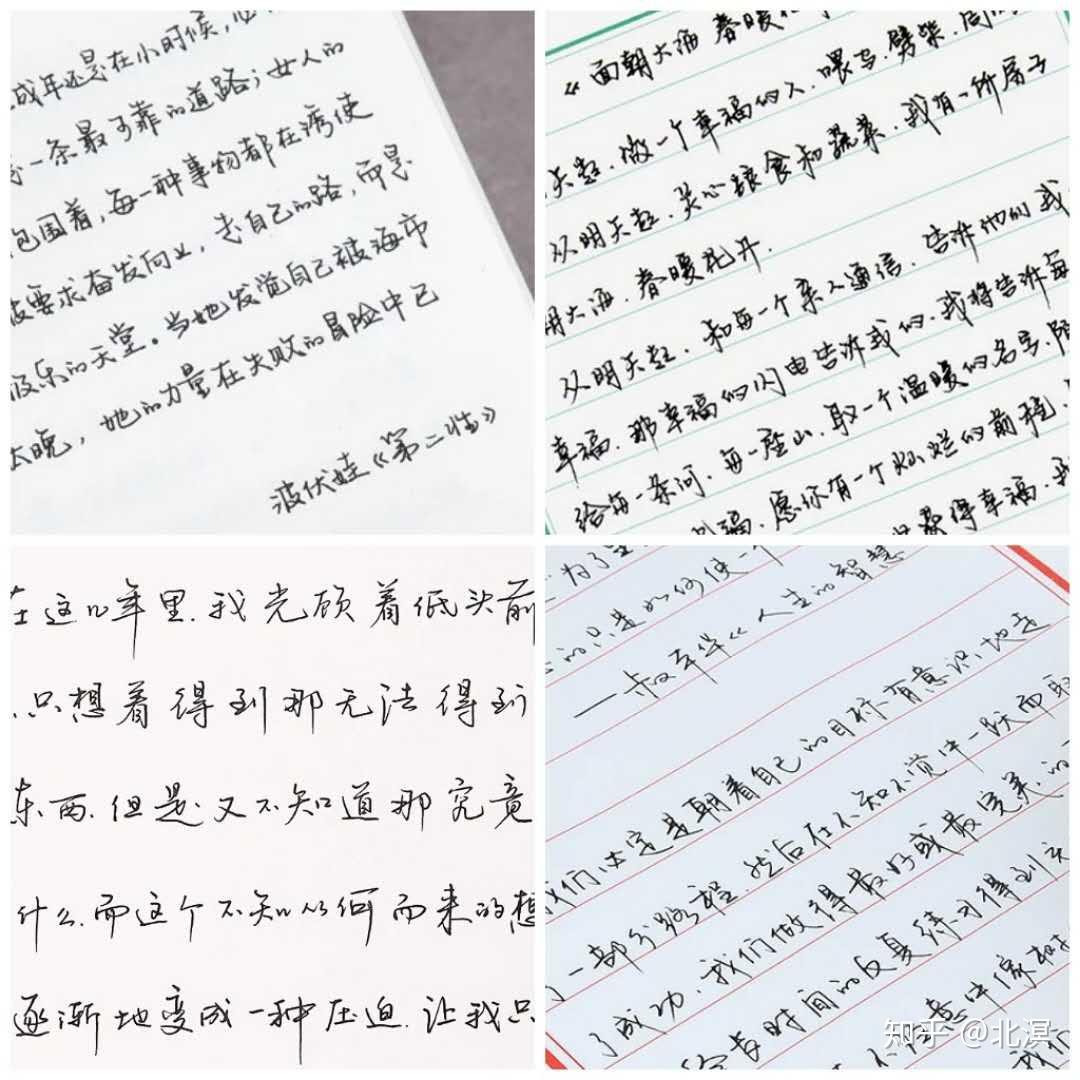 成年还是在小时候,
一条最可靠的道路;女人的
包围着,每一种事物都在诱使
被要求奋发向上,走自己的路,而是
极乐的天堂。当她发觉自己被海市
太晚,她的力量在失败的冒险中已
波伏娃《第二性》
《面朝大海 春暖
天起.做一个幸福的人.喂马.劈柴.周
从明天起.关心粮食和蔬菜.我有一所房子
朝大海.春暖花开.
从明天起.和每一个亲人通信.告诉他们我
幸福.那幸福的闪电告诉我的.我将告诉每
给每一条河.每一座山.取一个温暖的名字.陌
福.愿你有一个灿烂的前程.
获得幸福.我
在这几年里.我光顾着低头前
只想着得到那无法得到
东西.但是又不知道那究竟
什么.而这个不知从何而来的想
逐渐地变成一种压迫.让我只
为了
的只是如何使一个
——叔本华《人生的智慧
我们必定是朝着自己的目标有意识地走
一部分路程.然后在不知不觉中一跃而取
了成功.我们做得最好或最完美.的
经长时间的反复练习得到
不经意中像树
我们
知乎 @北溟